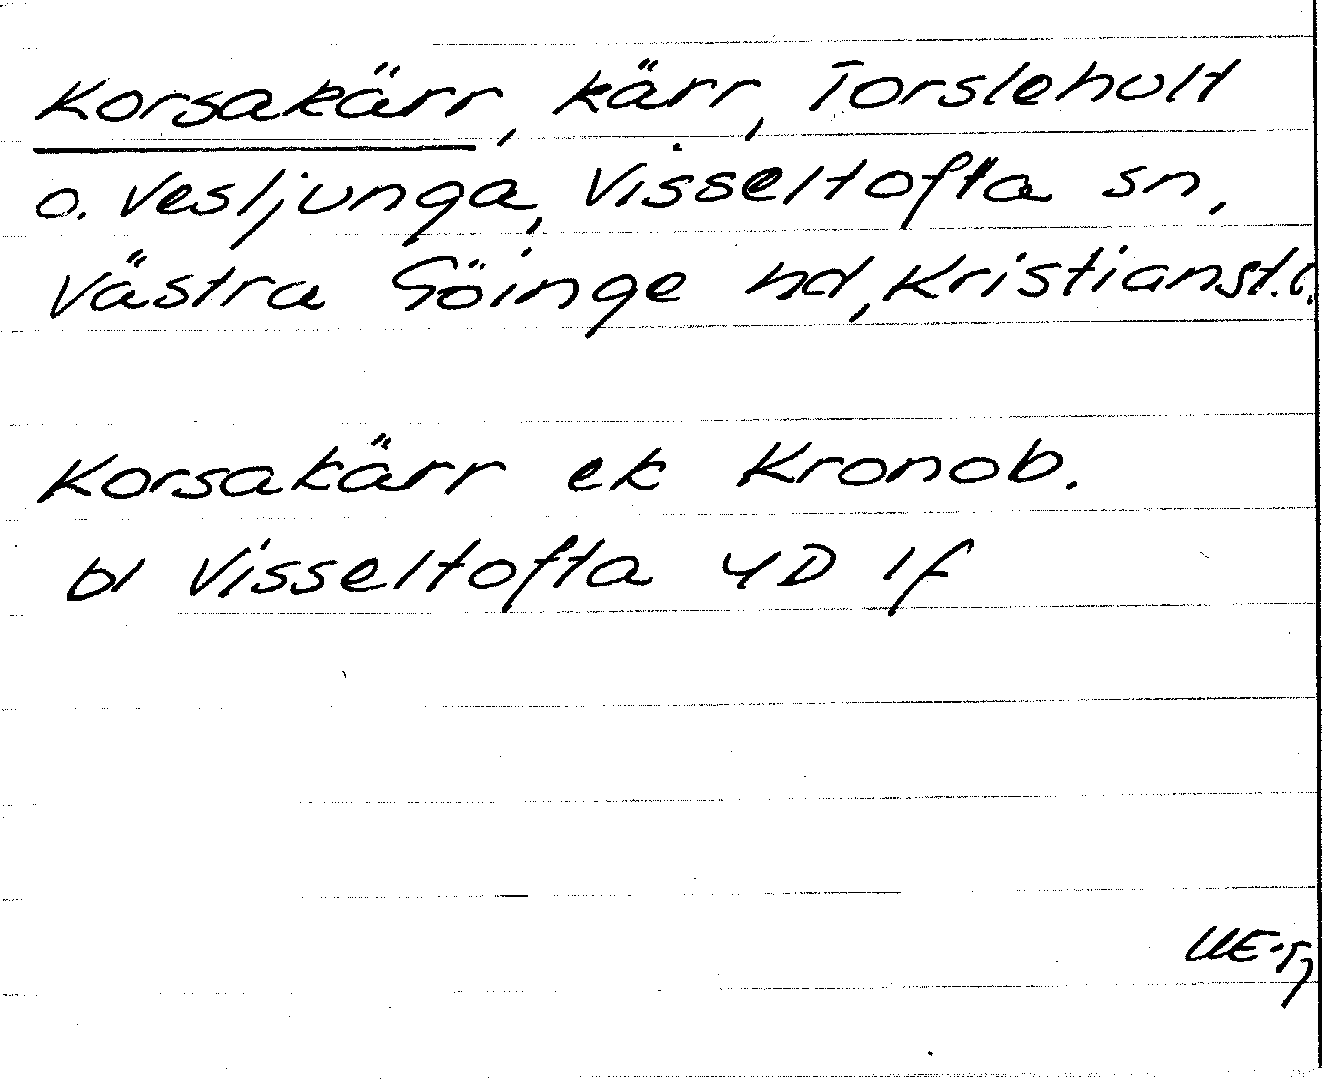 Korsakärr, kärr, Torsleholt
o. Vesljunga, Visseltofta sn,
Västra Göinge hd, Kristianst. l.
Korsakärr ek Kronob.
bl Visseltofta 4D 1f